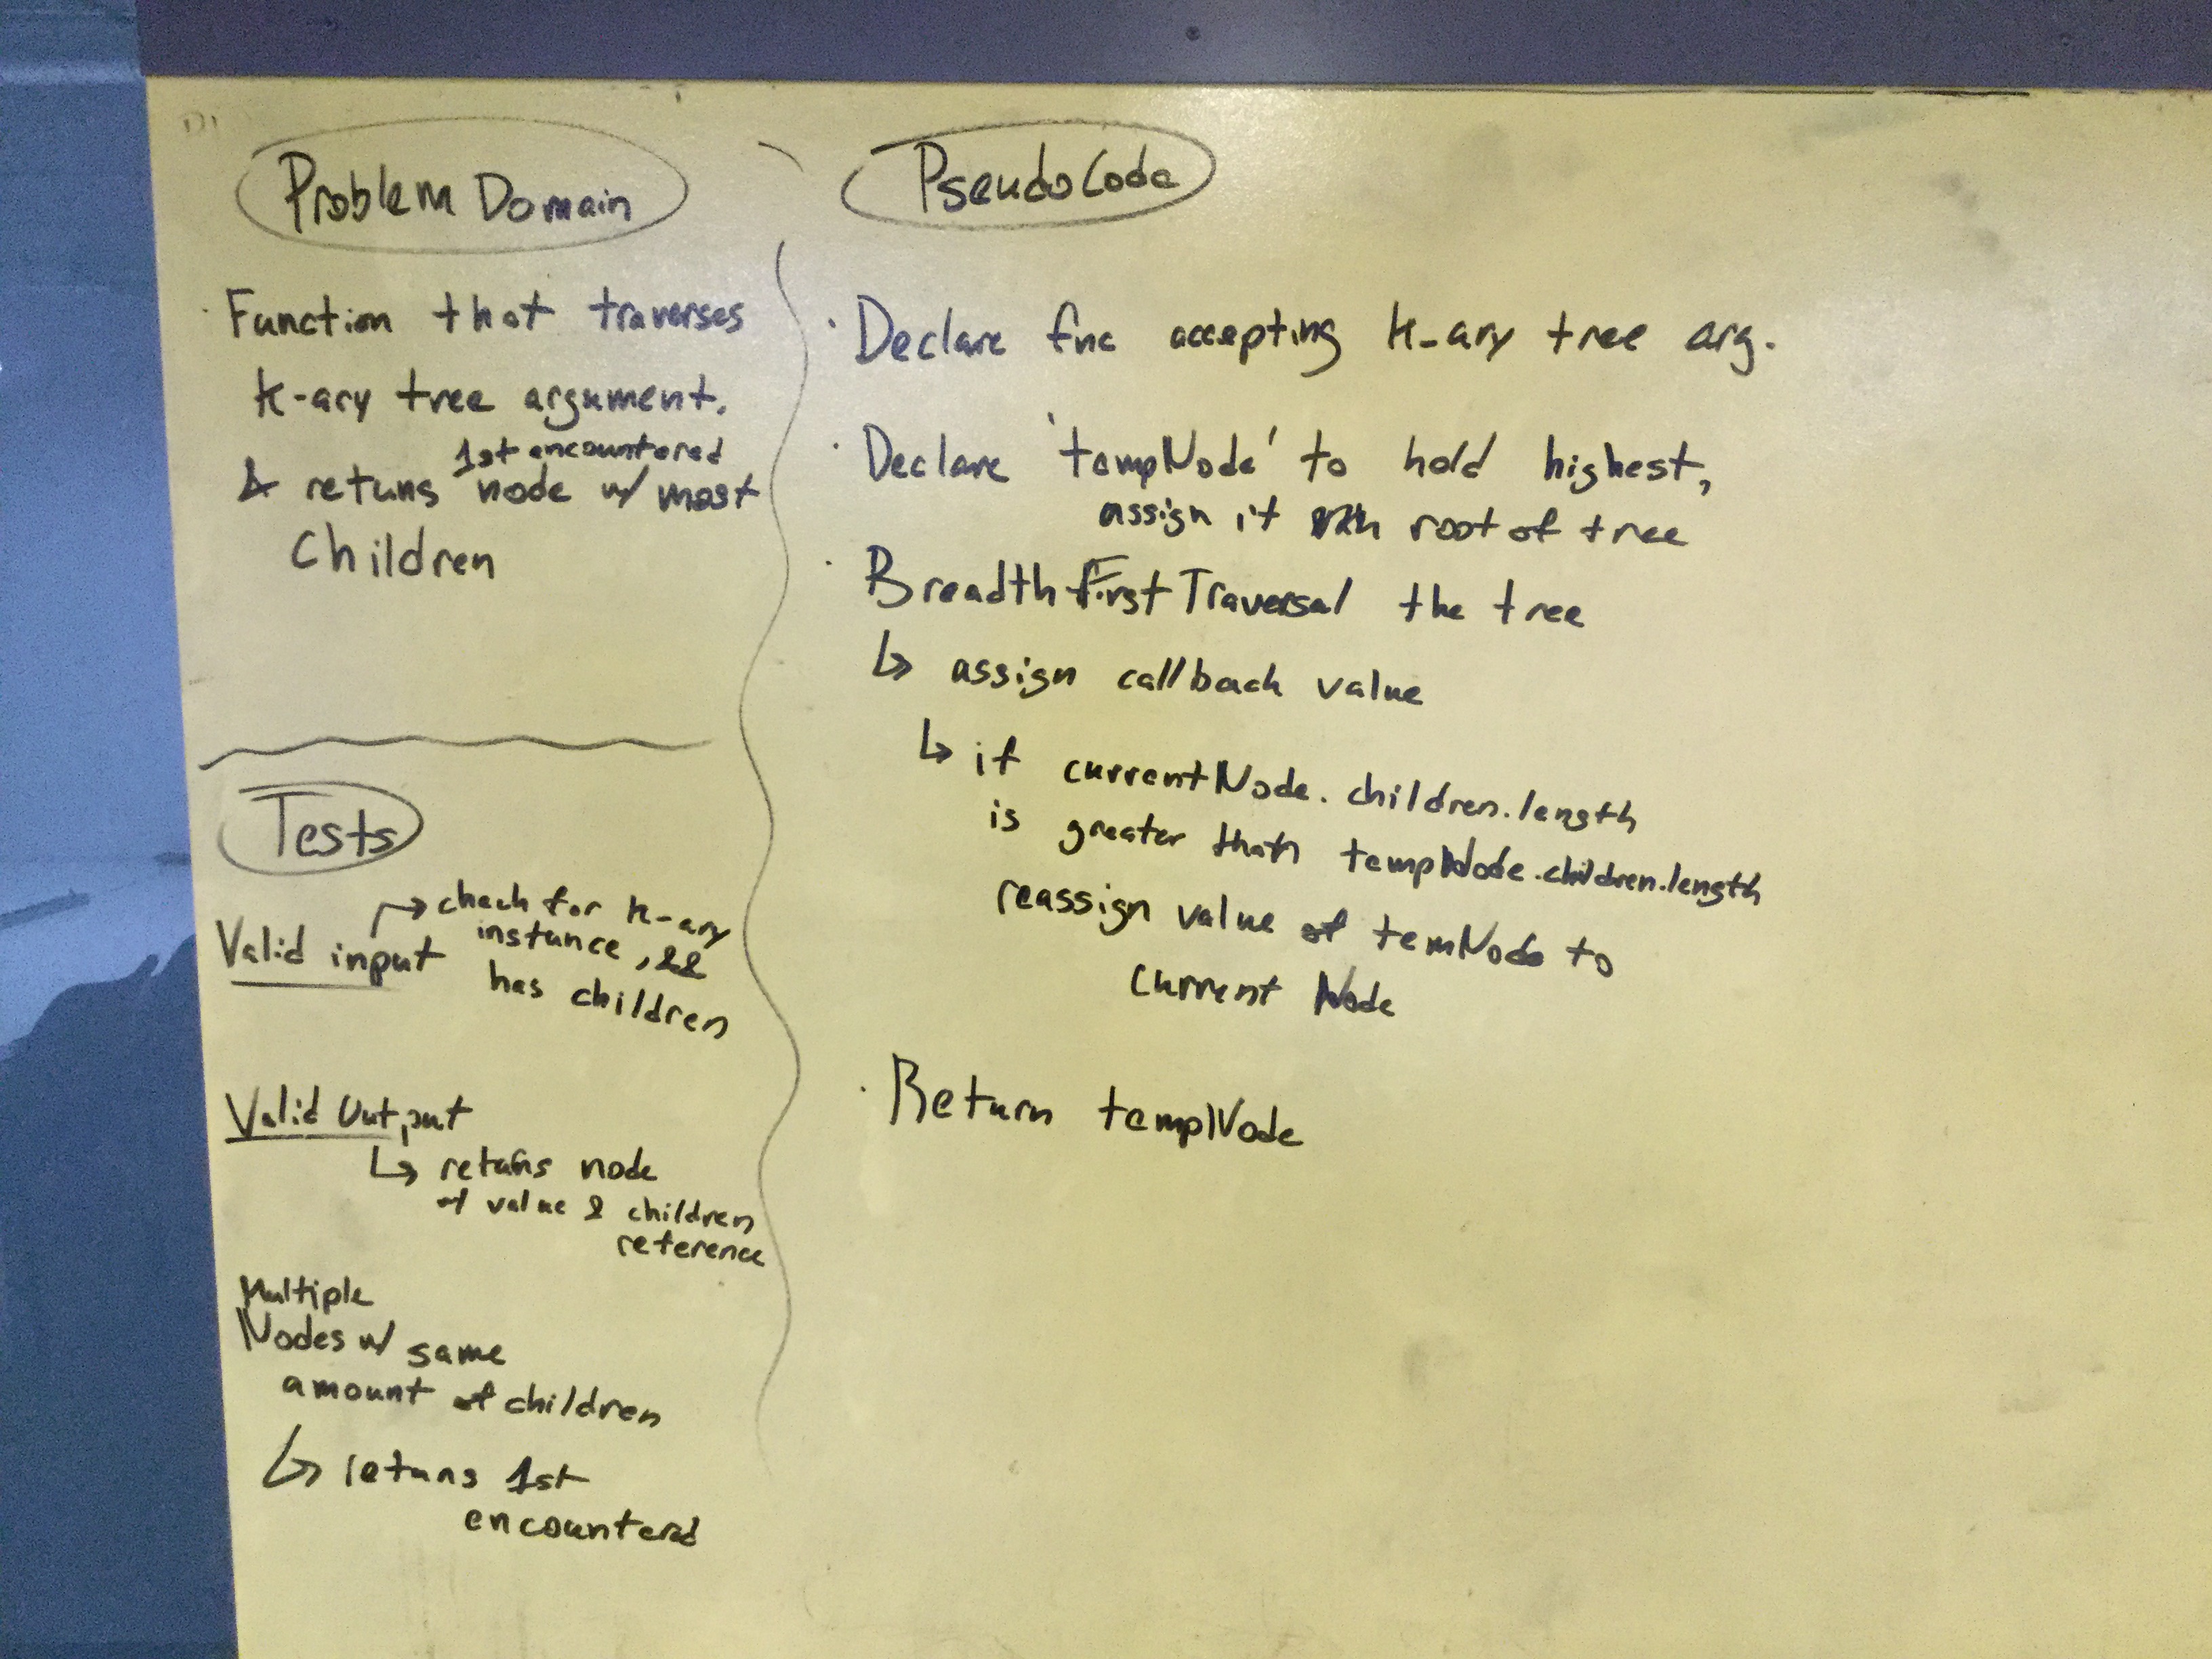 Problem Domain
Function that traverses
K-ary tree argument.
1st encountered
& retuns node w/ most
Children
Tests
Valid input → check for K-ary
instance, &&
has children
Valid Output
↳ retuns node
w/ value & children
reference
Multiple
Nodes w/ same
amount of children
↳ retuns 1st
encountered
PseudoCode
· Declare fnc accepting K-ary tree arg.
· Declare 'tempNode' to hold highest,
assign it with root of tree
· BreadthFirstTraversal the tree
↳ assign callback value
↳ if currentNode.children.length
is greater than tempNode.children.length
reassign value of temNode to
current Node
· Return tempNode